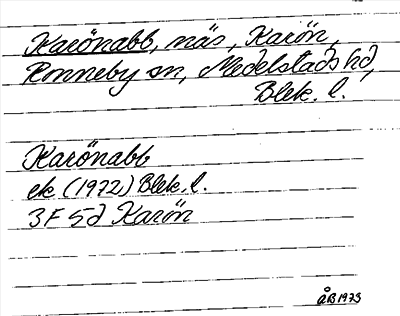 Karönabb, näs, Karön,
Ronneby sn, Medelstads hd,
Blek. l.
Karönabb
ek (1972) Blek. l.
3F 5d Karön
ÅB 1973